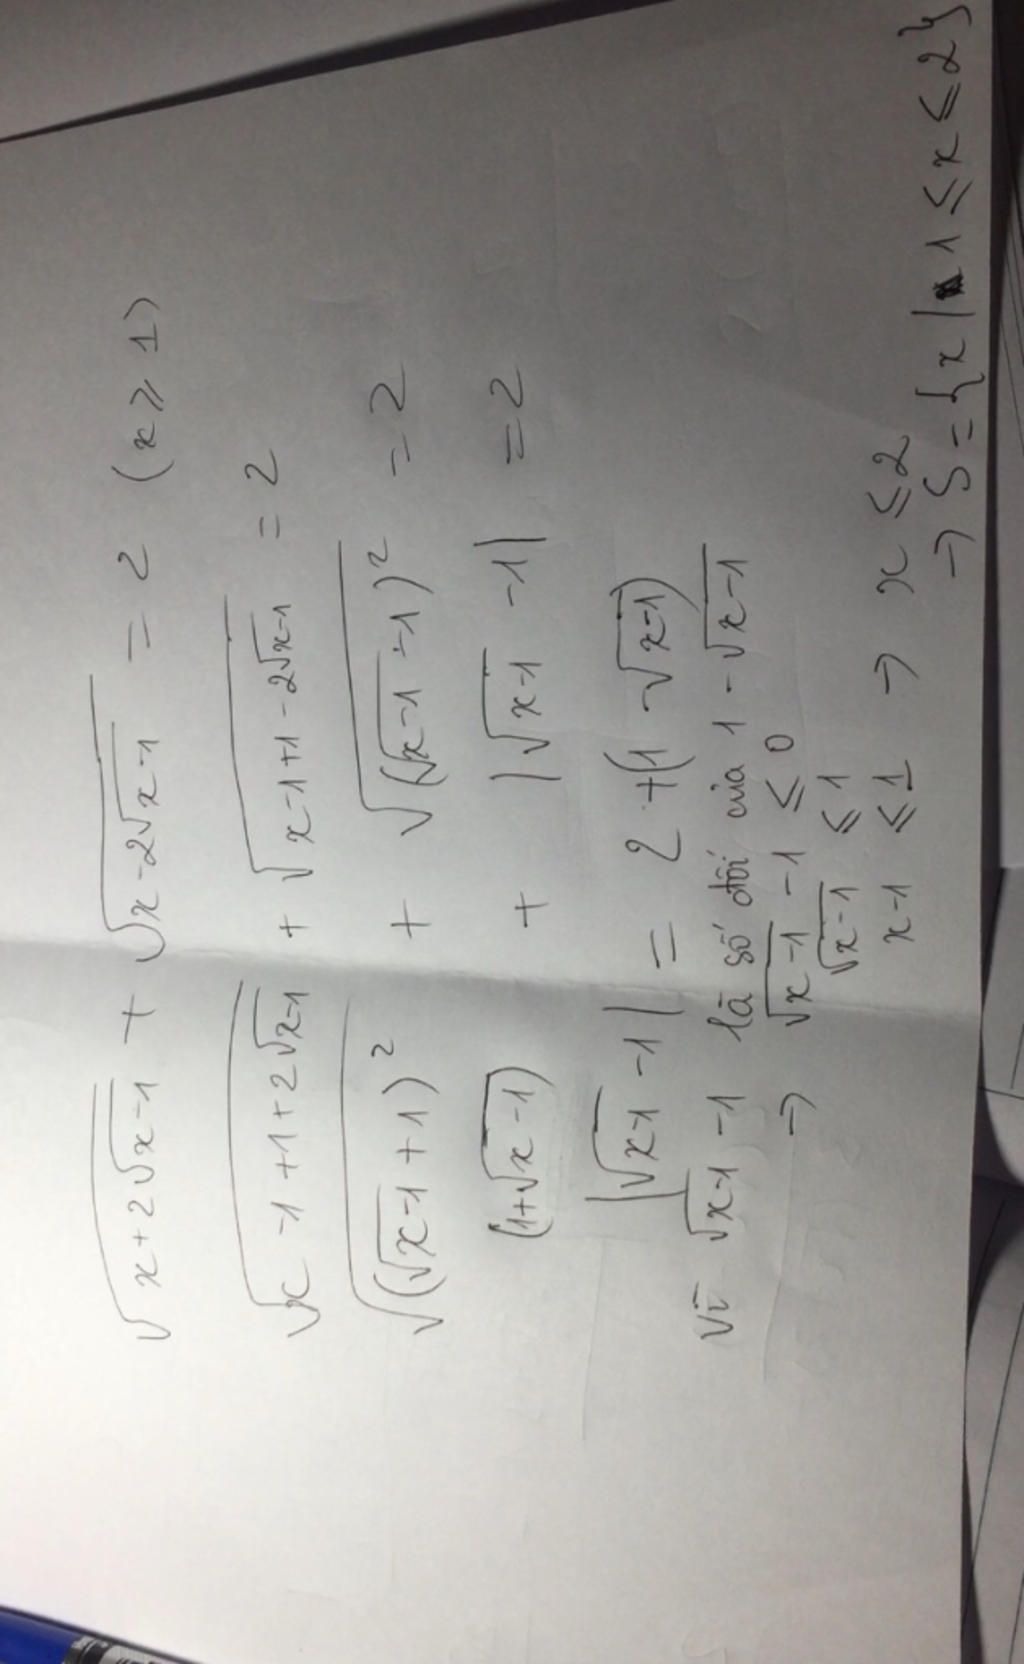 √(x+2√(x-1)) + √(x-2√(x-1)) = 2 (x ⩾ 1)
√(x-1+1+2√(x-1)) + √(x-1+1-2√(x-1)) = 2
√((√(x-1)+1)²) + √((√(x-1)-1)²) = 2
(1+√(x-1)) + |√(x-1) -1| = 2
|√(x-1) -1| = 2 +(1 -√(x-1))
Vì √(x-1) -1 là số đối của 1 -√(x-1)
→ √(x-1) -1 ⩽ 0
√(x-1) ⩽ 1
x-1 ⩽ 1 → x ⩽ 2
→ S = {x | 1 ⩽ x ⩽ 2}